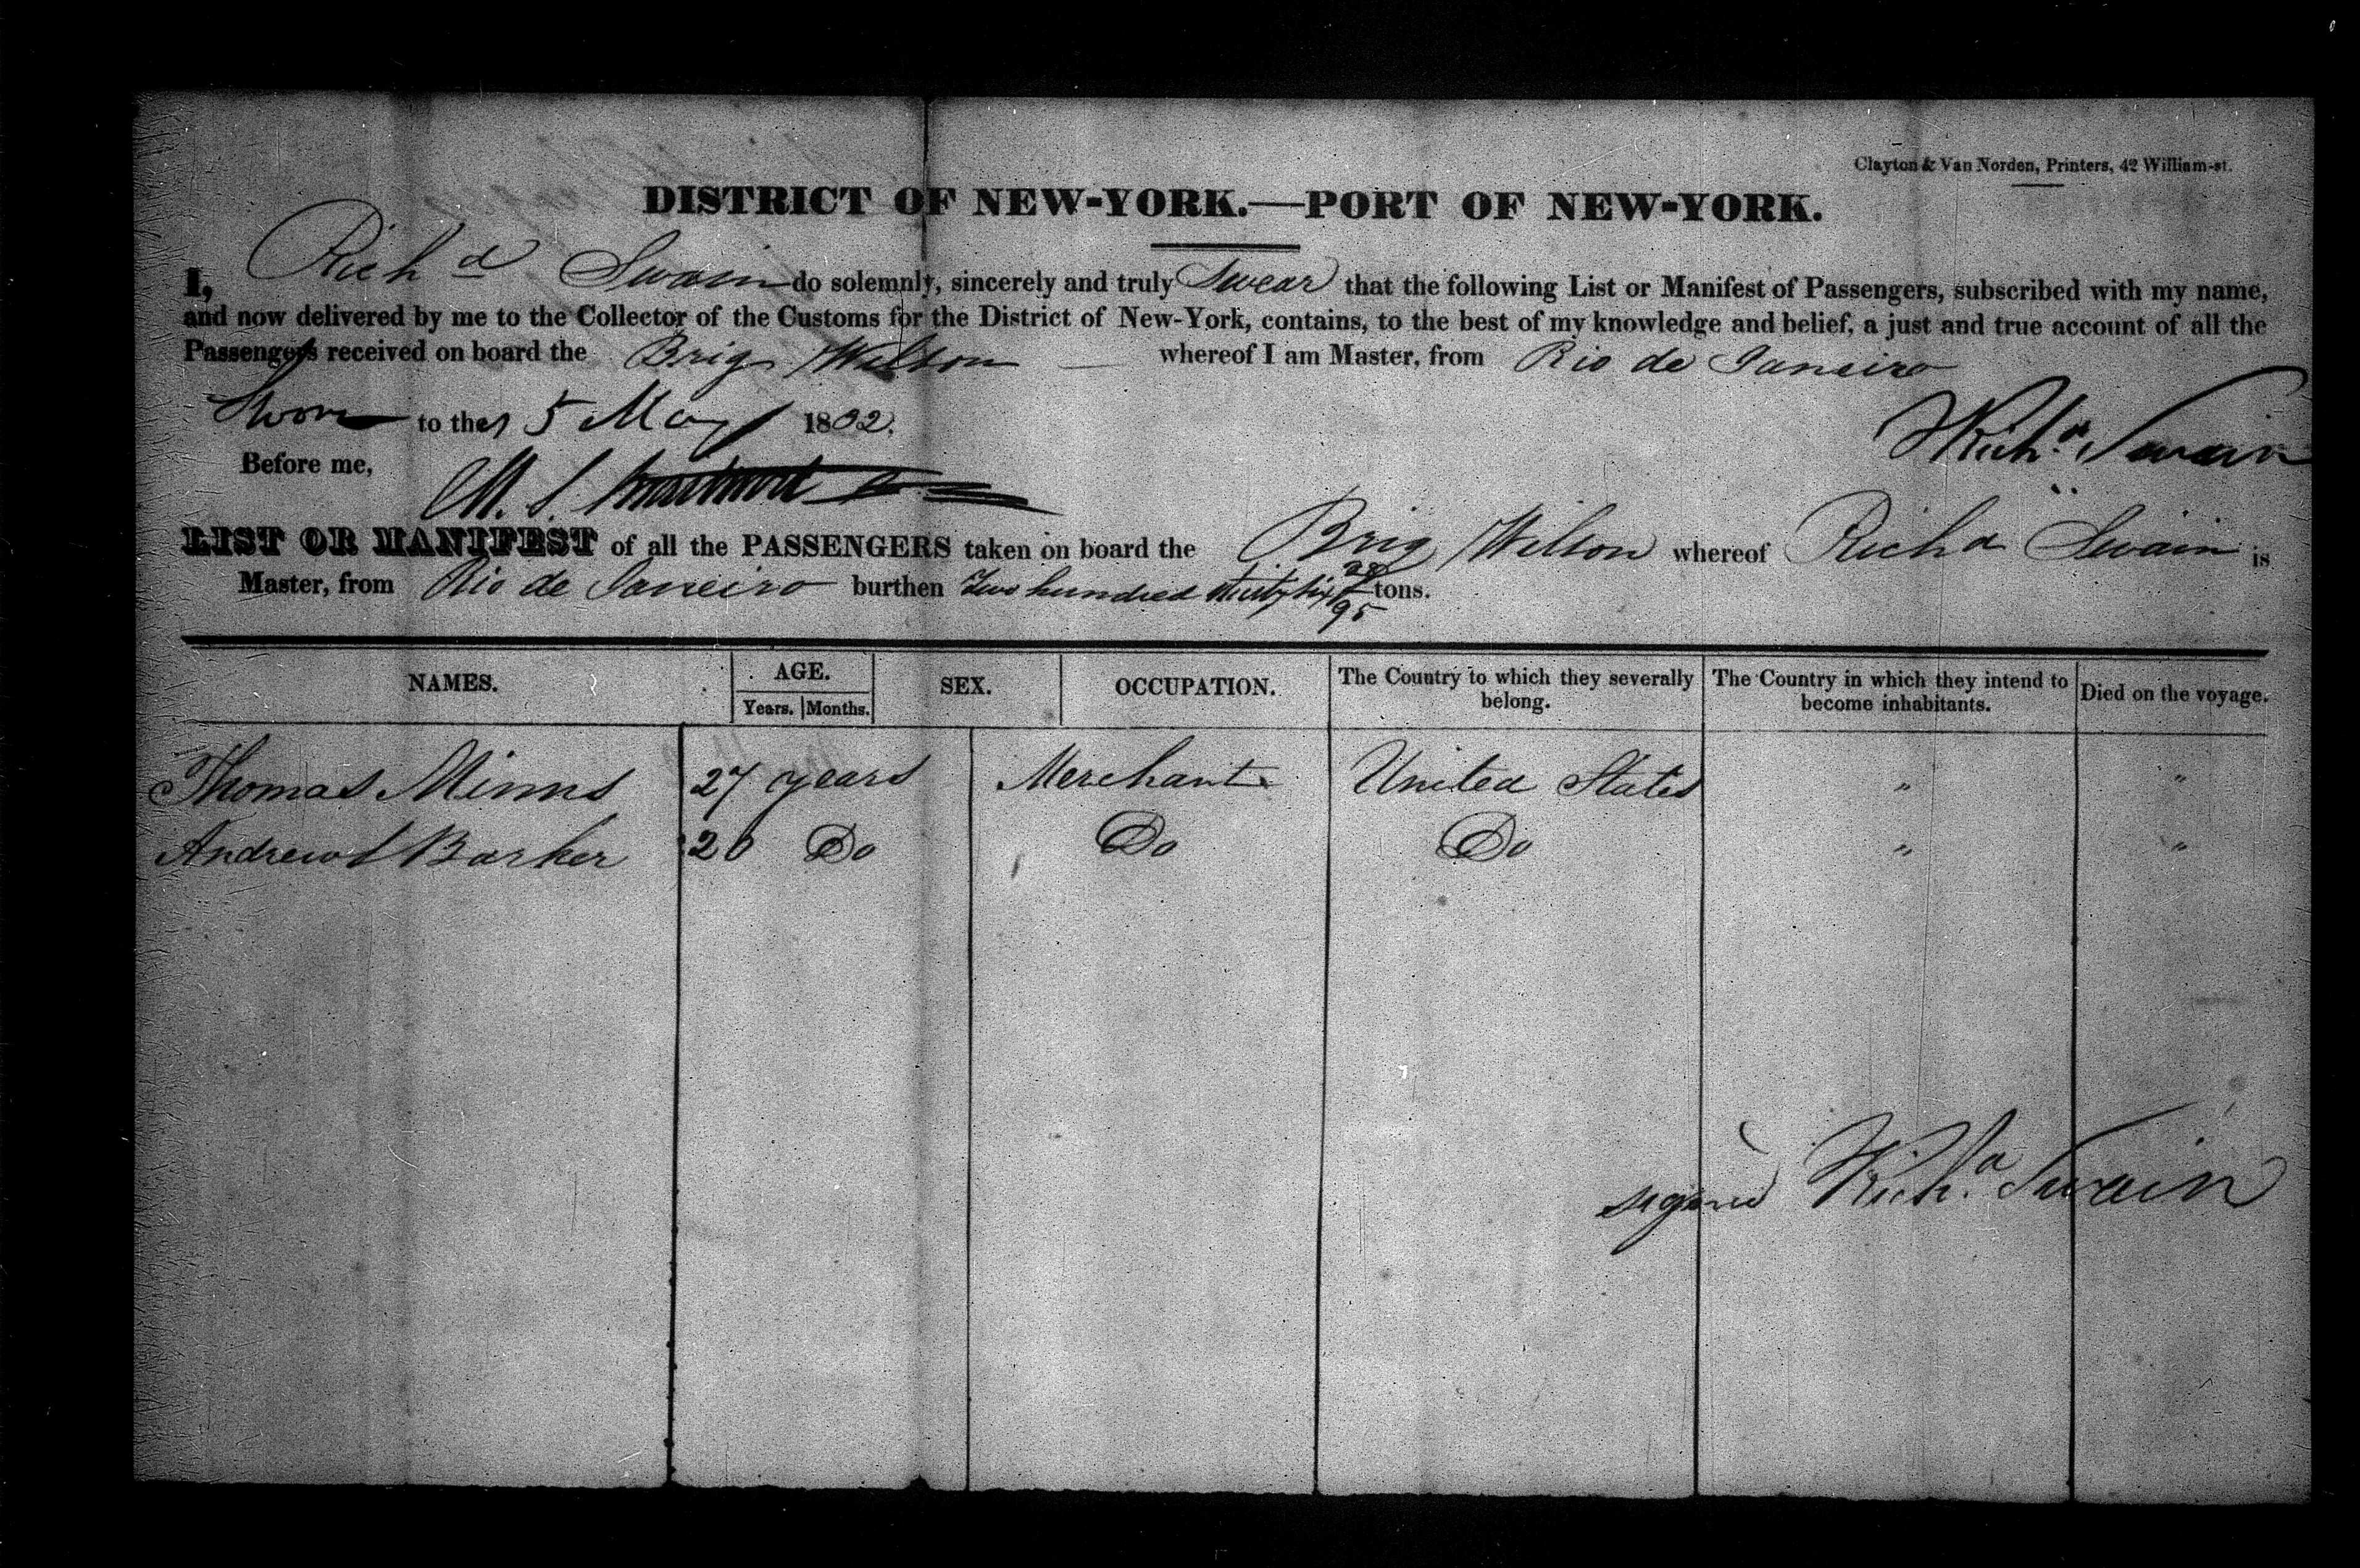 Clayton & Van Norden, Printers, 42 William-st.
DISTRICT OF NEW-YORK.—PORT OF NEW-YORK.
I, Richd Swain do solemnly, sincerely and truly Swear that the following List or Manifest of Passengers, subscribed with my name,
and now delivered by me to the Collector of the Customs for the District of New-York, contains, to the best of my knowledge and belief, a just and true account of all the
Passengers received on board the Brig Wilson whereof I am Master, from Rio de Janeiro
Sworn to the 5 May 1832. Richd Swain
Before me,
M. S.
LIST OR MANIFEST of all the PASSENGERS taken on board the Brig Wilson whereof Richd Swain is
Master, from Rio de Janeiro burthen Two hundred thirty six 28/95 tons.
NAMES. AGE. Years. Months. SEX. OCCUPATION. The Country to which they severally belong. The Country in which they intend to become inhabitants. Died on the voyage.
Thomas Minns 27 years Merchant United States " "
Andrew Barker 26 Do Do Do " "
signed Richd Swain